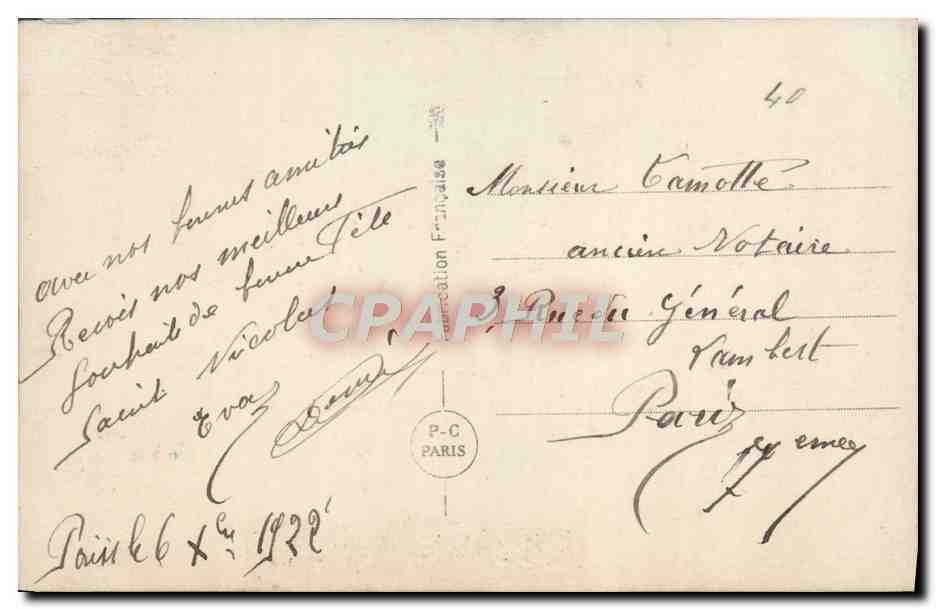 avec nos bonnes amitiés
Reçois nos meilleurs
souhaits de bonne Fête
Saint Nicolas
Eva
Paris le 6 Xbre 1922
Fabrication Française
P-C
PARIS
CPARAPHIL
40
Monsieur Tamotte
ancien Notaire
3 Rue du Général
Lambert
Paris
7eme